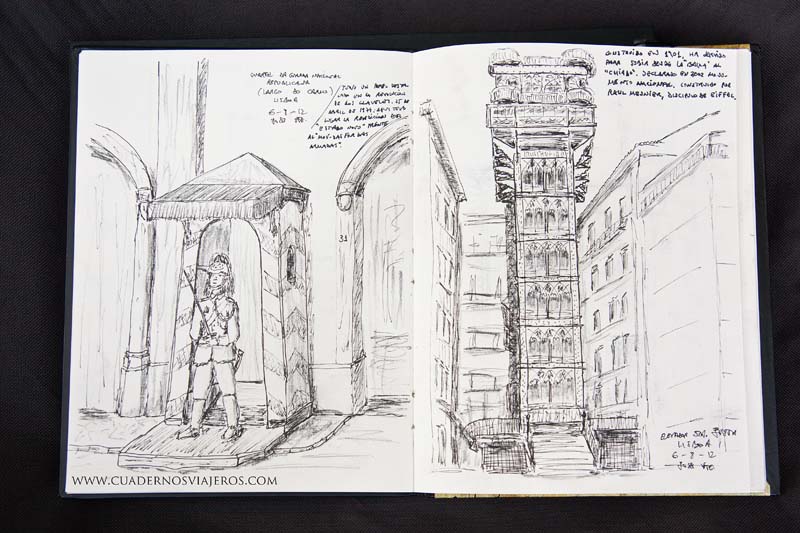 CUARTEL DA GUARDA NACIONAL
REPUBLICANA
(LARGO DO CARMO)
LISBOA
6-8-12
TUVO UN PAPEL DESTA
CADO EN LA REVOLUCIÓN
DE LOS CLAVELES, 25 DE
ABRIL DE 1974, AQUÍ TUVO
LUGAR LA RENDICIÓN DEL
"ESTADO NOVO" FRENTE
AL "MOV. DAS FORÇAS
ARMADAS".
31
CONSTRUIDO EN 1901, HA SERVIDO
PARA SUBIR DESDE LA "BAIXA" AL
"CHIADO". DECLARADO EN 2002 MONU-
MENTO NACIONAL, CONSTRUIDO POR
RAUL MESNIER, DISCIPULO DE EIFFEL.
ELEVADOR STA. JUSTA
LISBOA
6-8-12
WWW.CUADERNOSVIAJEROS.COM